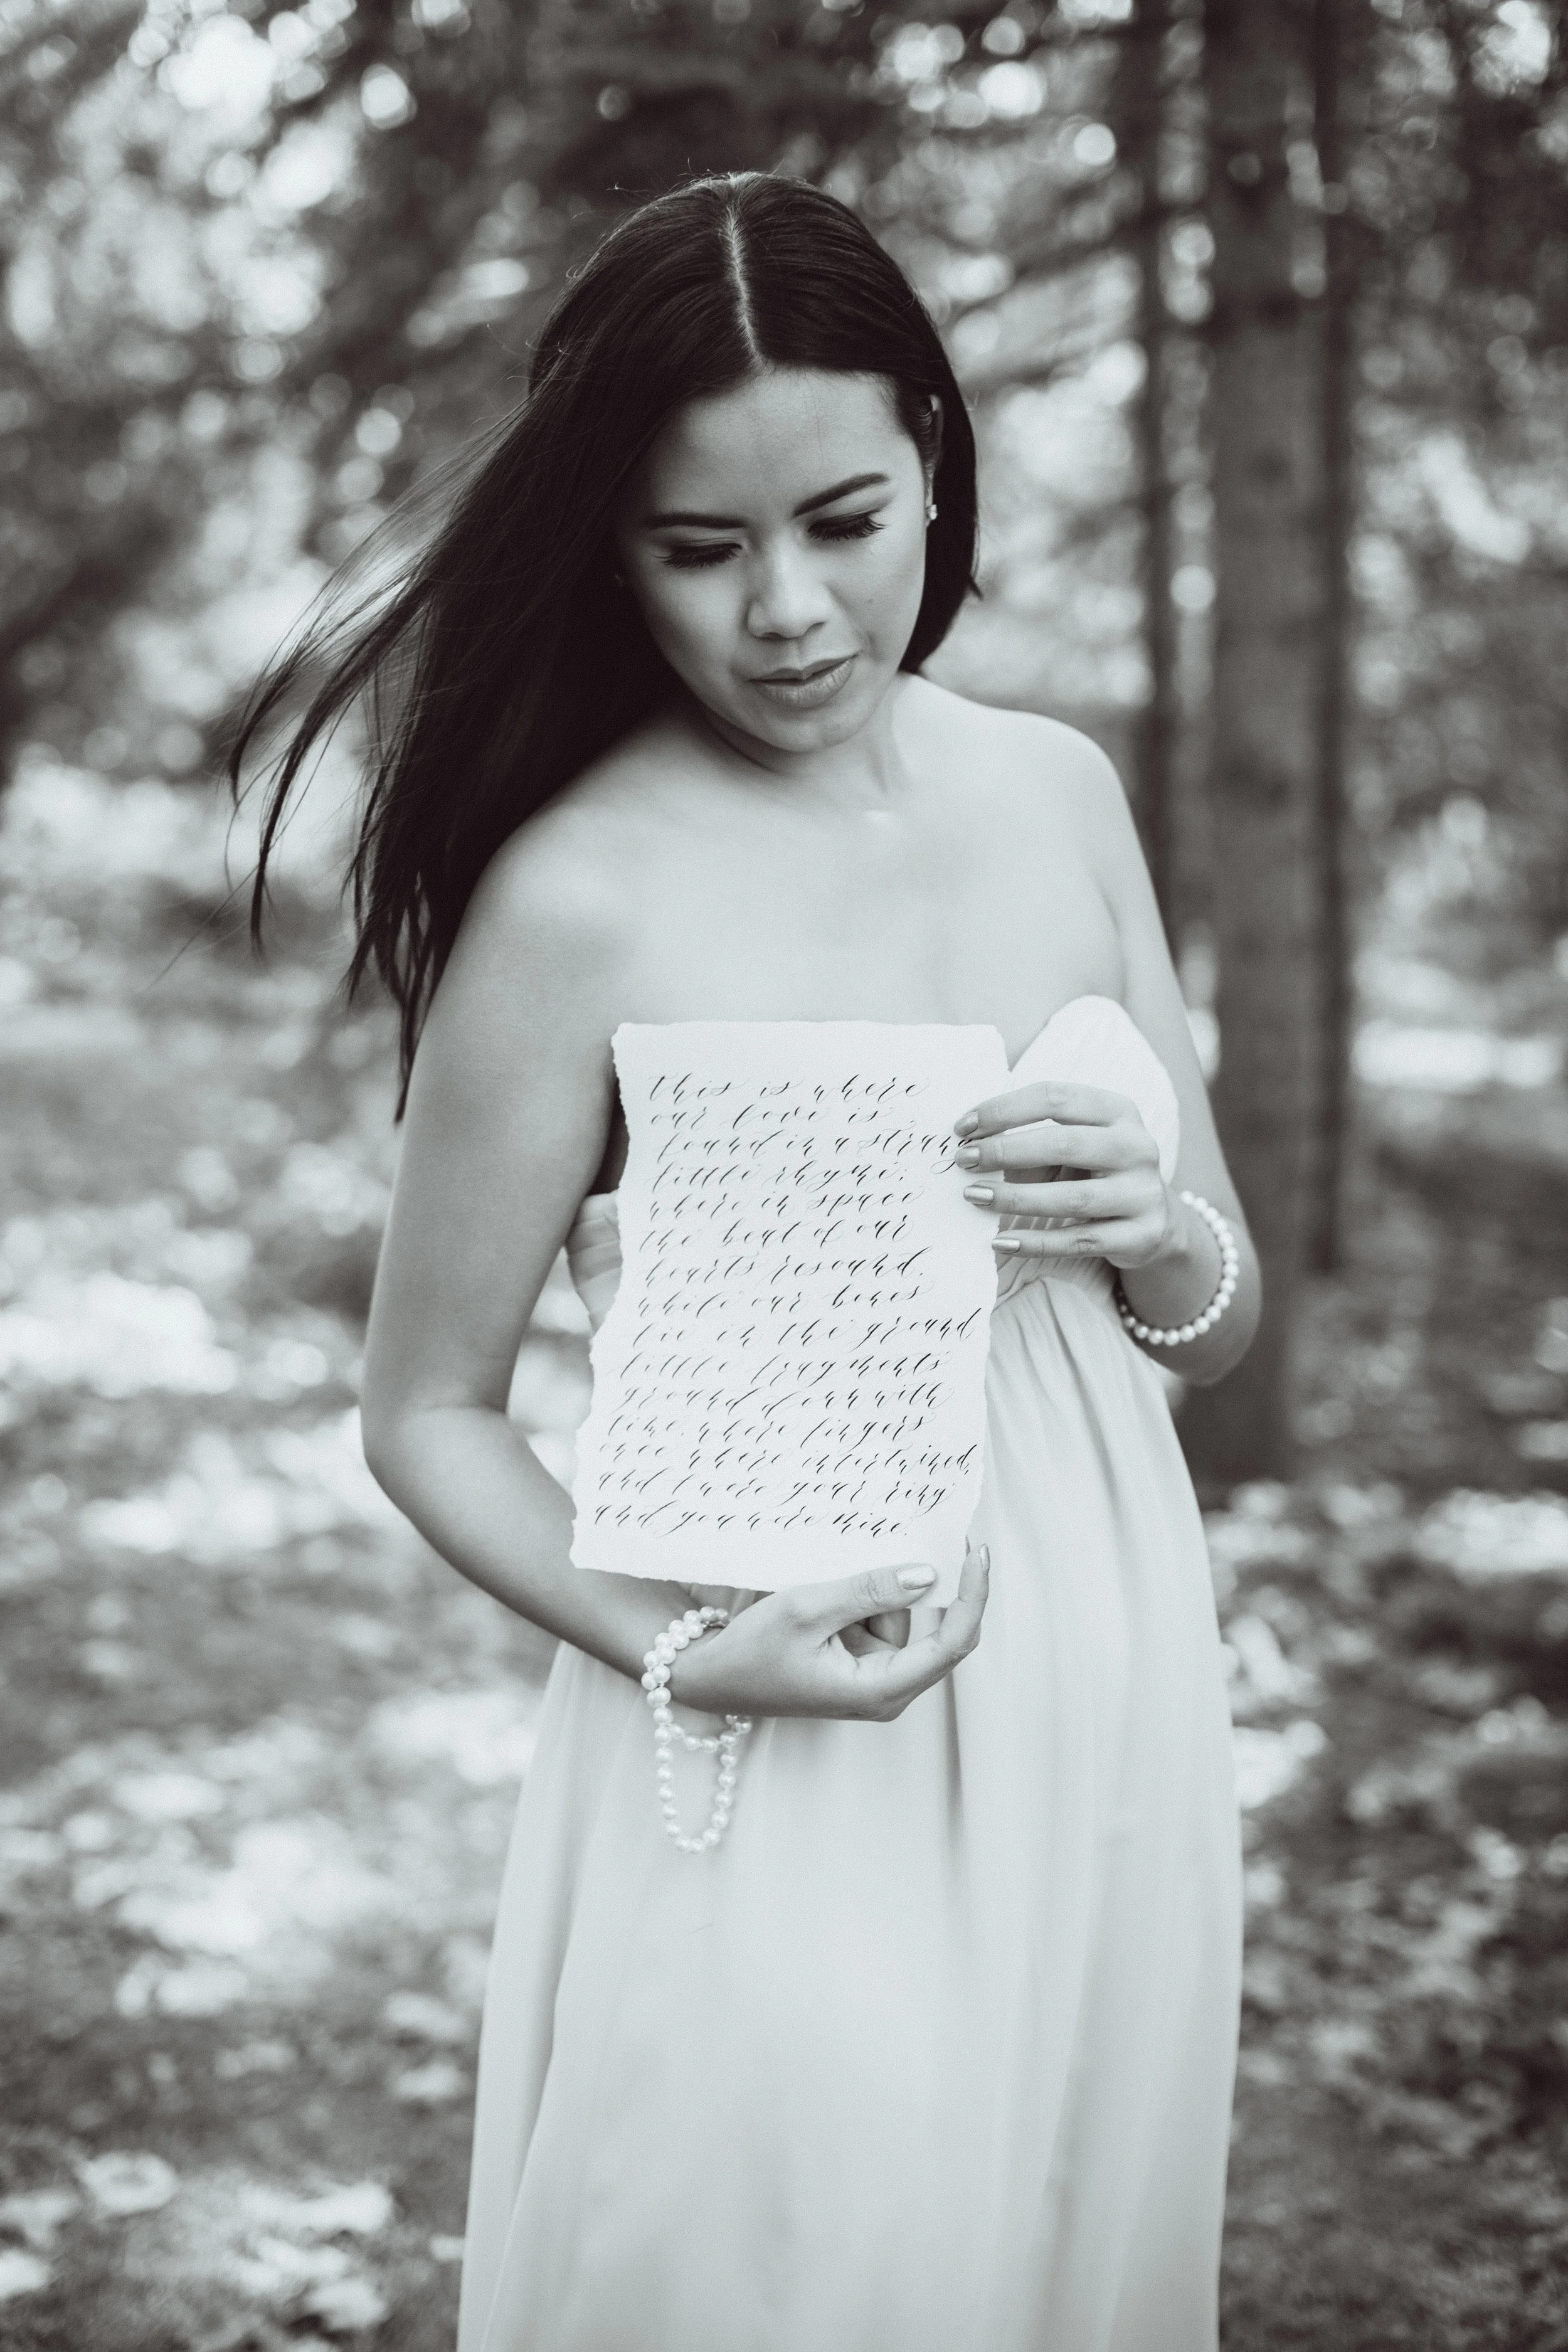 this is where
our love is
found in a strang
little rhyme;
where in space
the beat of our
hearts resound.
while our bones
lie in the ground
little fragments
ground down with
time. where fingers
once where intertwined,
and I wore your ring
and you were mine.